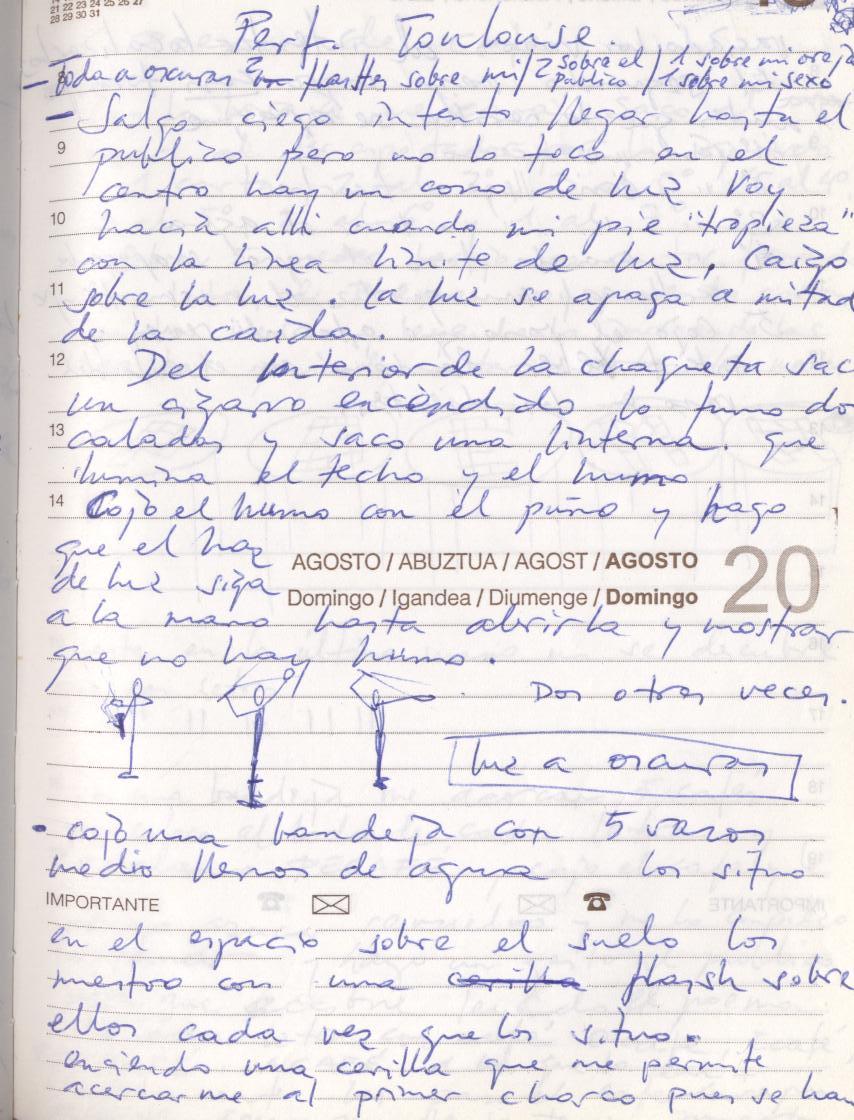 21 22 23 24 25 26 27
28 29 30 31
Perf. Toulouse.
- Toda a oscuras 2 flashes sobre mi / 2 sobre el publico / 1 sobre mi oreja 1 sobre mi sexo
- Salgo ciego intento llegar hasta el
9 publico pero no lo toco en el
centro hay un cono de luz Voy
10 hacia alli cuando mi pie "tropieza"
con la linea limite de luz. Caigo
11 sobre la luz. la luz se apaga a mitad
de la caida.
12 Del interior de la chaqueta sac
un cigarro encendido lo fumo do
13 caladas y saco una linterna. que
ilumina el techo y el humo
14 Cojo el humo con el puño y hago
que el haz
AGOSTO / ABUZTUA / AGOST / AGOSTO 20
de luz siga
Domingo / Igandea / Diumenge / Domingo
a la mano hasta abrirla y mostrar
que no hay humo.
Dos otras veces.
luz a oscuras
• cojo una bandeja con 5 vasos
medio llenos de agua los situo
IMPORTANTE
en el espacio sobre el suelo los
muestro con una cerilla flash sobre
ellos cada vez que los situo.
enciendo una cerilla que me permite
acercarme al primer charco pues se han